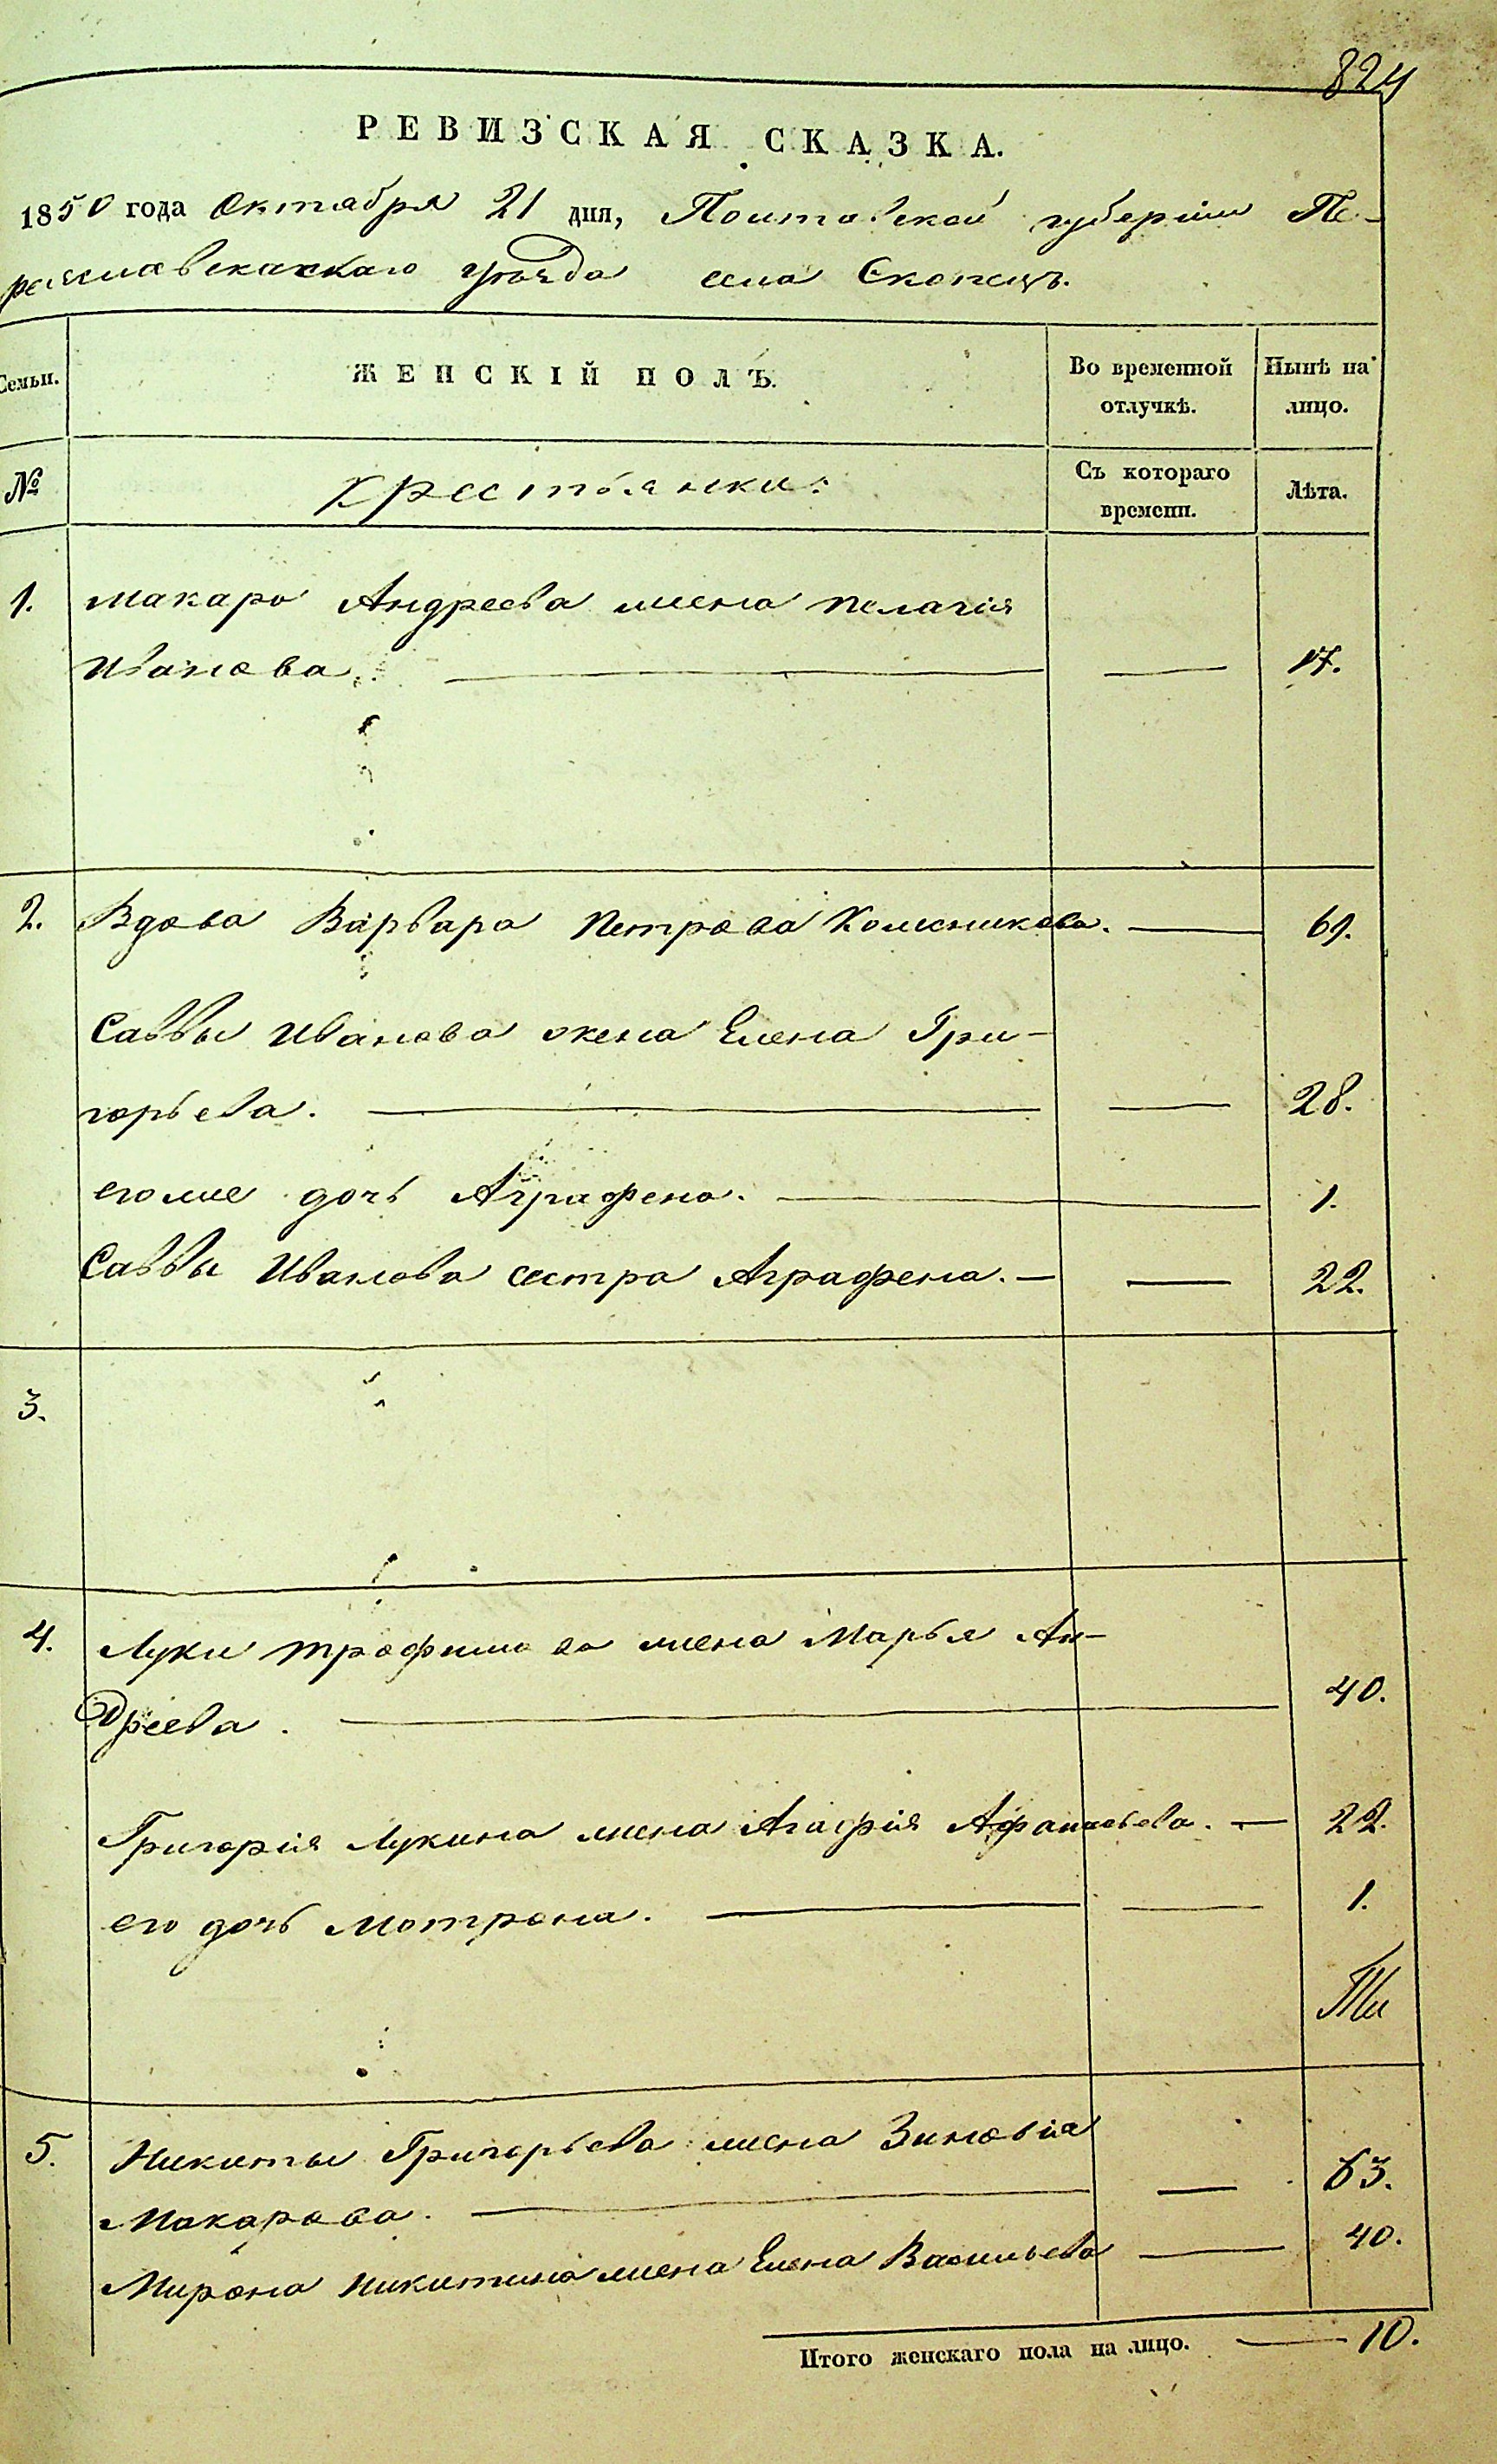 824
РЕВИЗСКАЯ СКАЗКА.
1850 года Октября 21 дня, Полтавской губерніи Пе-
реяславскаго уѣзда села Скопецъ.
Семьи. ЖЕНСКІЙ ПОЛЪ. Во временной отлучкѣ. Нынѣ на лицо.
№ Крестьянки: Съ котораго времени. Лѣта.
1. Макара Андреева жена Пелагія
Иванова. — — 17.
2. Вдова Варвара Петрова Колесникова. — 69.
Саввы Иванова жена Елена Гри-
горьева. — — 28.
его же дочь Аграфена. — 1.
Саввы Иванова сестра Аграфена. — — 22.
3.
4. Луки Трофимова жена Марья Ан-
дреева. — 40.
Григорія Лукина жена Агафія Афанасьева. — 22.
его дочь Мотрона. — — 1.
5. Никиты Григорьева жена Зиновія
Макарова. — — 63.
Мирона Никитина жена Елена Васильева — 40.
Итого женскаго пола на лицо. — 10.